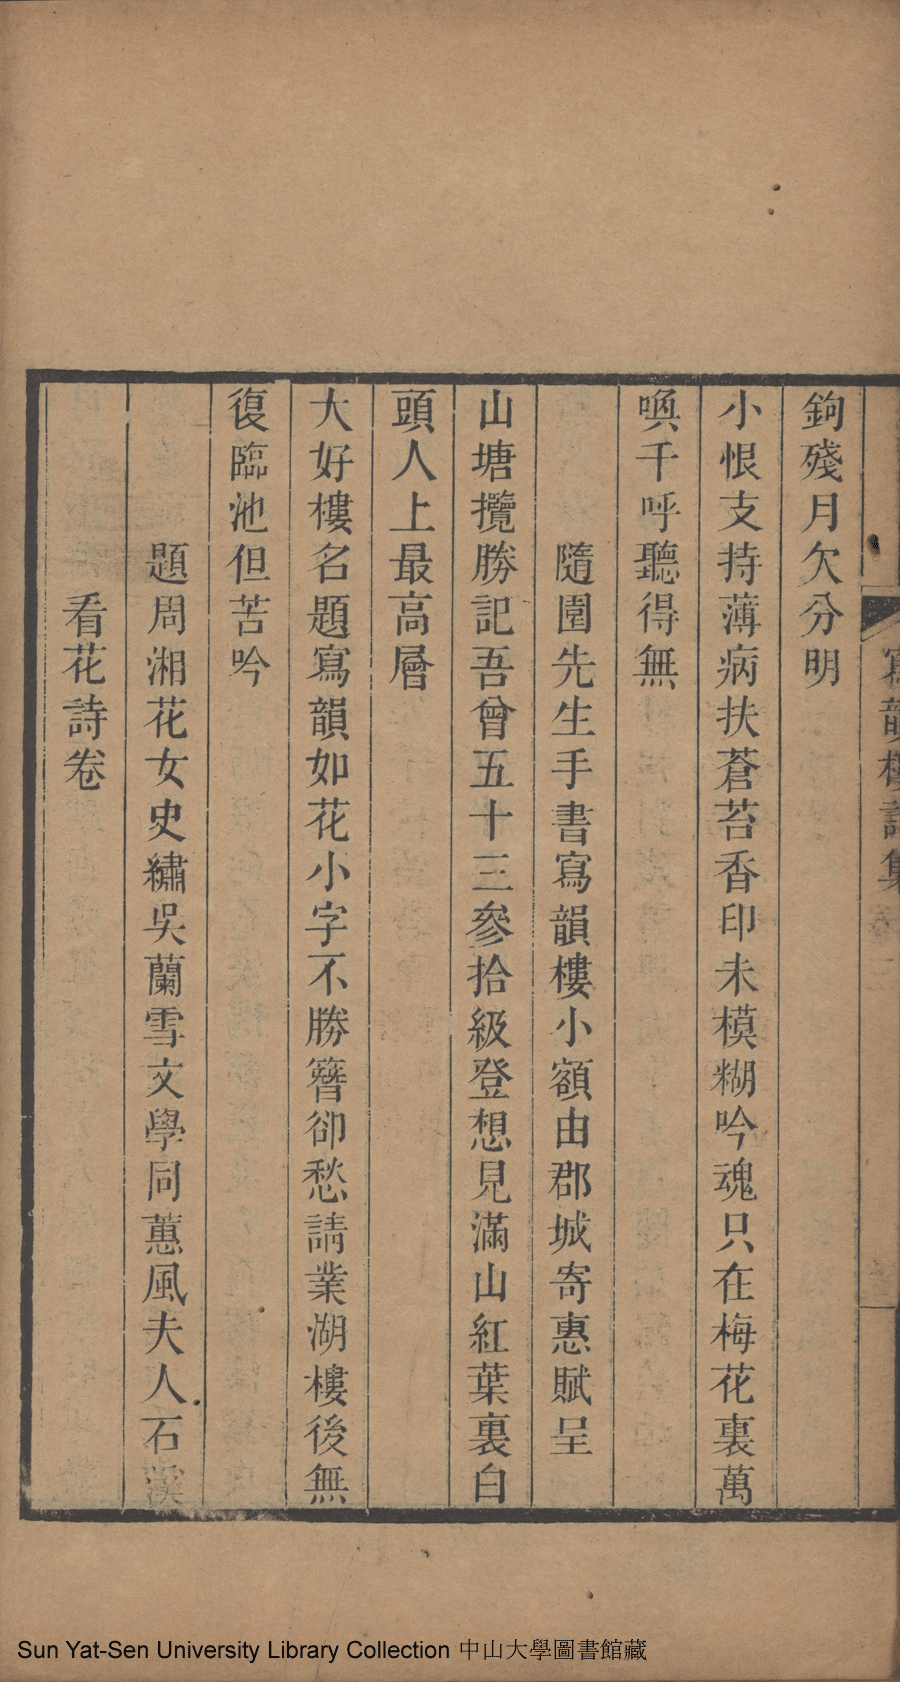 寫韻樓詩集
鉤殘月欠分明
小恨支持薄病扶蒼苔香印未模糊吟魂只在梅花裏萬
喚千呼聽得無
隨園先生手書寫韻樓小額由郡城寄惠賦呈
山塘攬勝記吾曾五十三參拾級登想見滿山紅葉裏白
頭人上最高層
大好樓名題寫韻如花小字不勝簪卻愁請業湖樓後無
復臨池但苦吟
題周湘花女史繡吳蘭雪文學同蕙風夫人石溪
看花詩卷
Sun Yat-Sen University Library Collection 中山大學圖書館藏